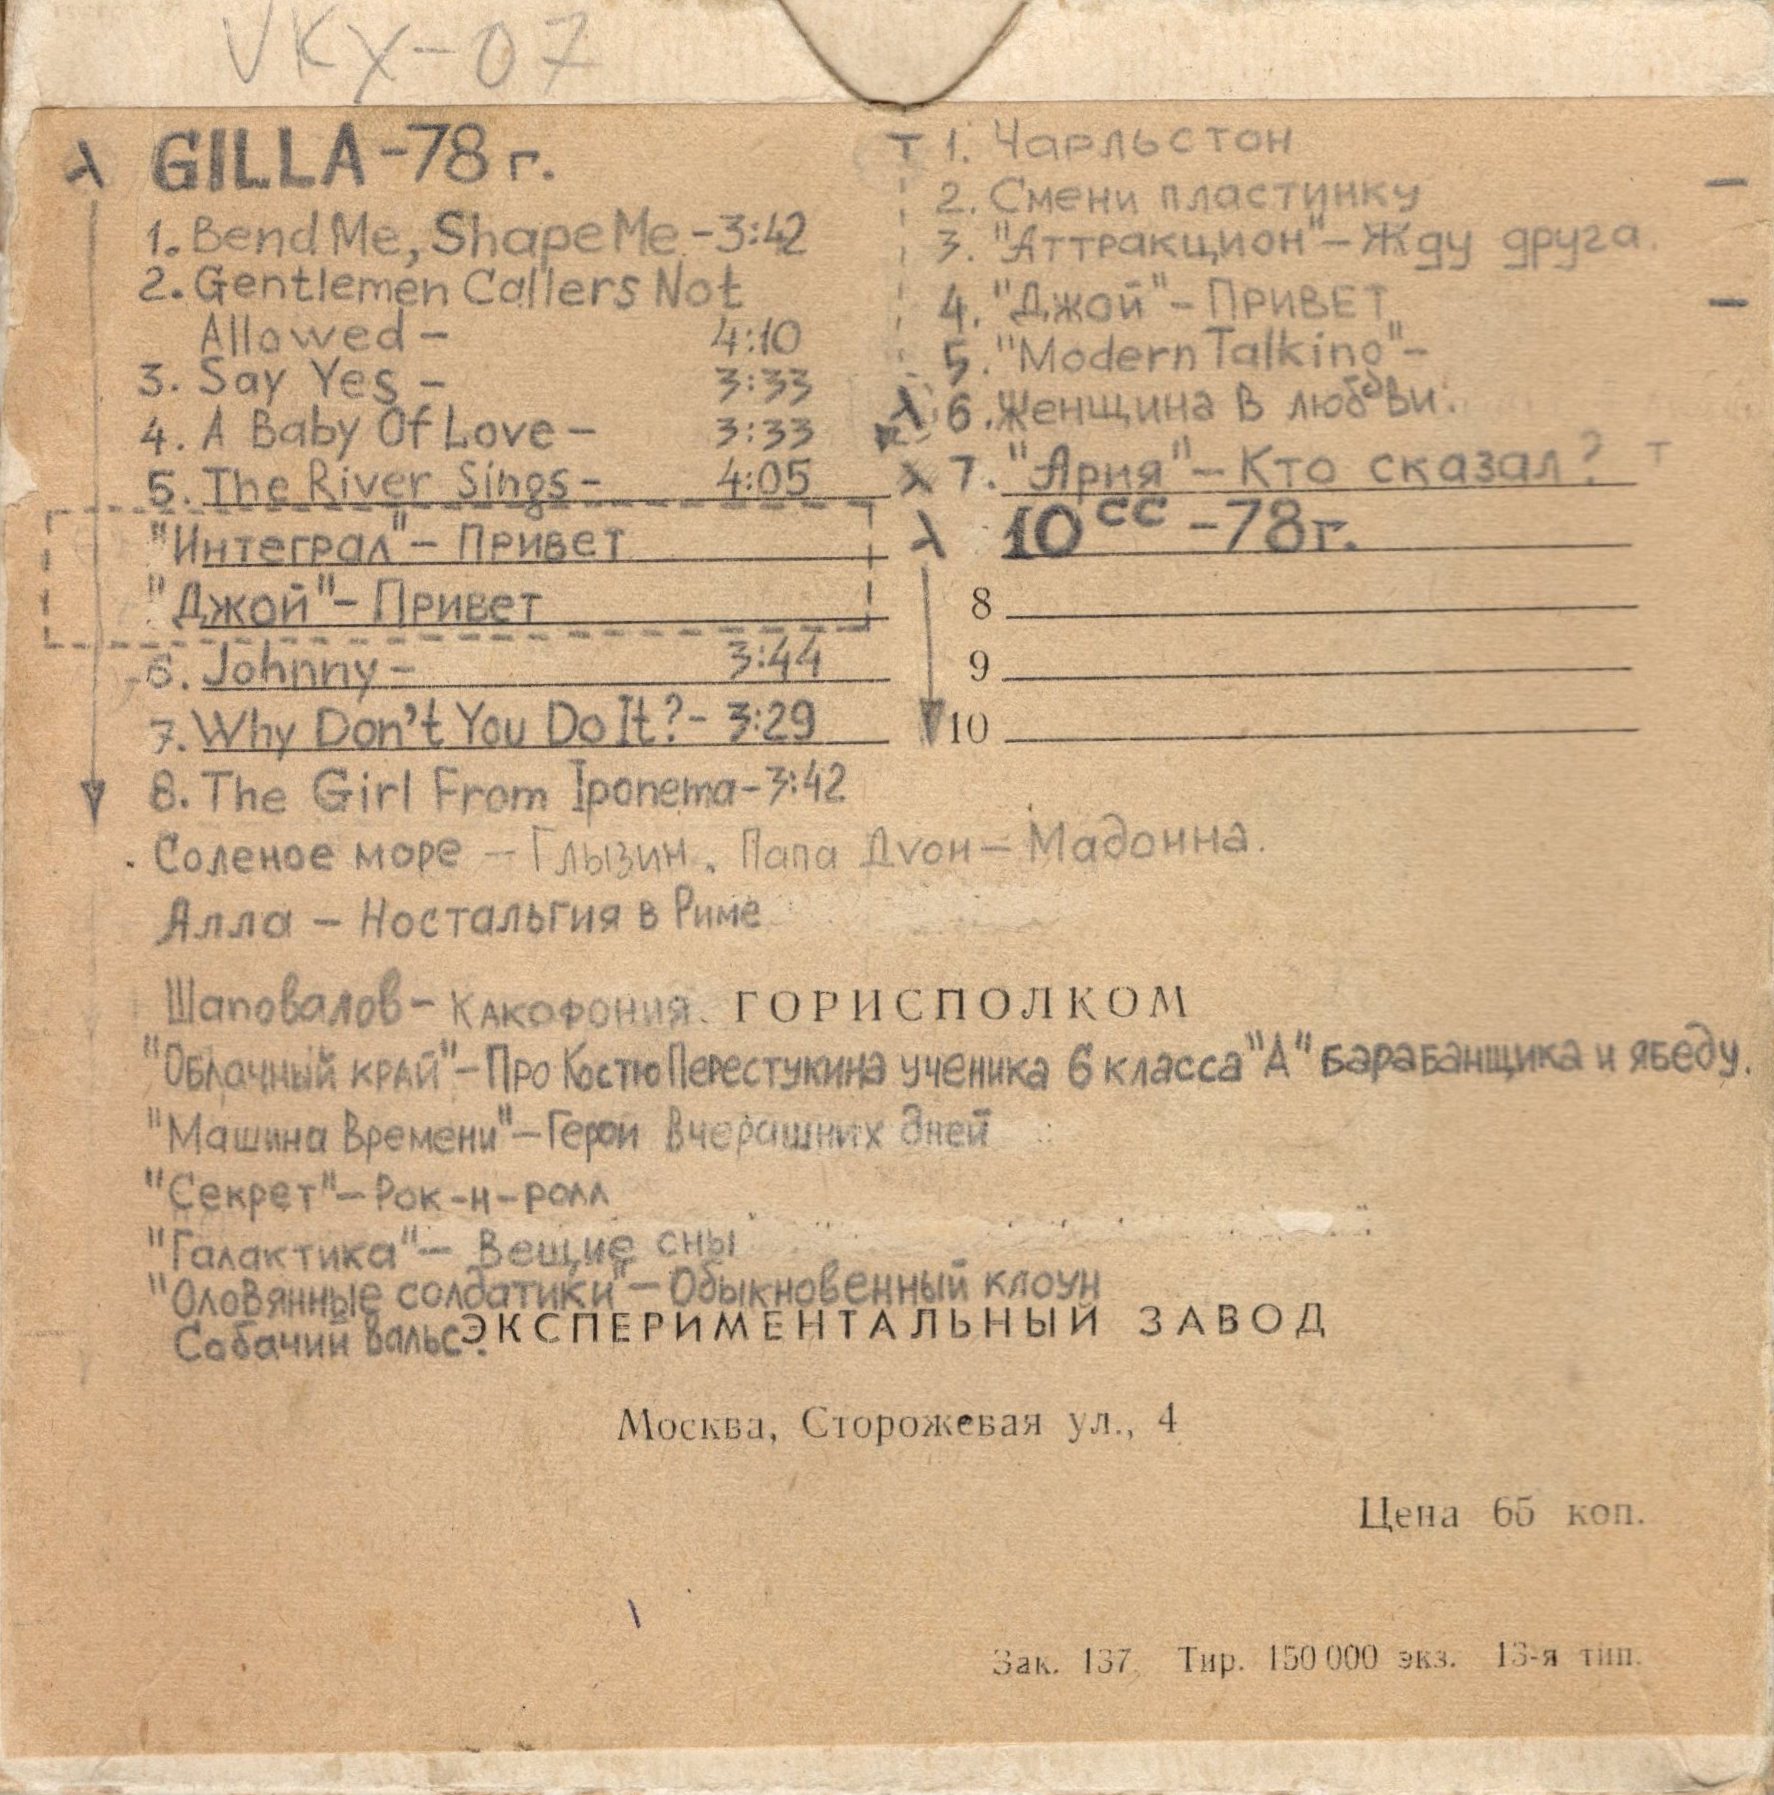 VKX-07
λ GILLA -78 г.
1. Bend Me, Shape Me - 3:42
2. Gentlemen Callers Not
Allowed - 4:10
3. Say Yes - 3:33
4. A Baby Of Love - 3:33
5. The River Sings - 4:05
"Интеграл" - Привет
"Джой" - Привет
6. Johnny - 3:44
7. Why Don't You Do It? - 3:29
8. The Girl From Iponema - 3:42
т 1. Чарльстон
2. Смени пластинку
3. "Аттракцион" - Жду друга.
4. "Джой" - Привет
5. "Modern Talking" -
λ 6. Женщина в любви.
λ 7. "Ария" - Кто сказал? т
λ 10cc - 78г.
8
9
10
Соленое море - Глызин. Папа Дуон - Мадонна.
Алла - Ностальгия в Риме
Шаповалов - Какофония. ГОРИСПОЛКОМ
"Облачный край" - Про Костю Перестукина ученика 6 класса "А" барабанщика и ябеду.
"Машина Времени" - Герои вчерашних дней
"Секрет" - Рок-н-ролл
"Галактика" - Вещие сны
"Оловянные солдатики" - Обыкновенный клоун
Собачий вальс. ЭКСПЕРИМЕНТАЛЬНЫЙ ЗАВОД
Москва, Сторожевая ул., 4
Цена 65 коп.
Зак. 137. Тир. 150 000 экз. 13-я тип.